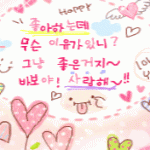 Happy
좋아하는데
무슨 이유가 있니?
그냥 좋은거지~
바보야! 사랑해~!!